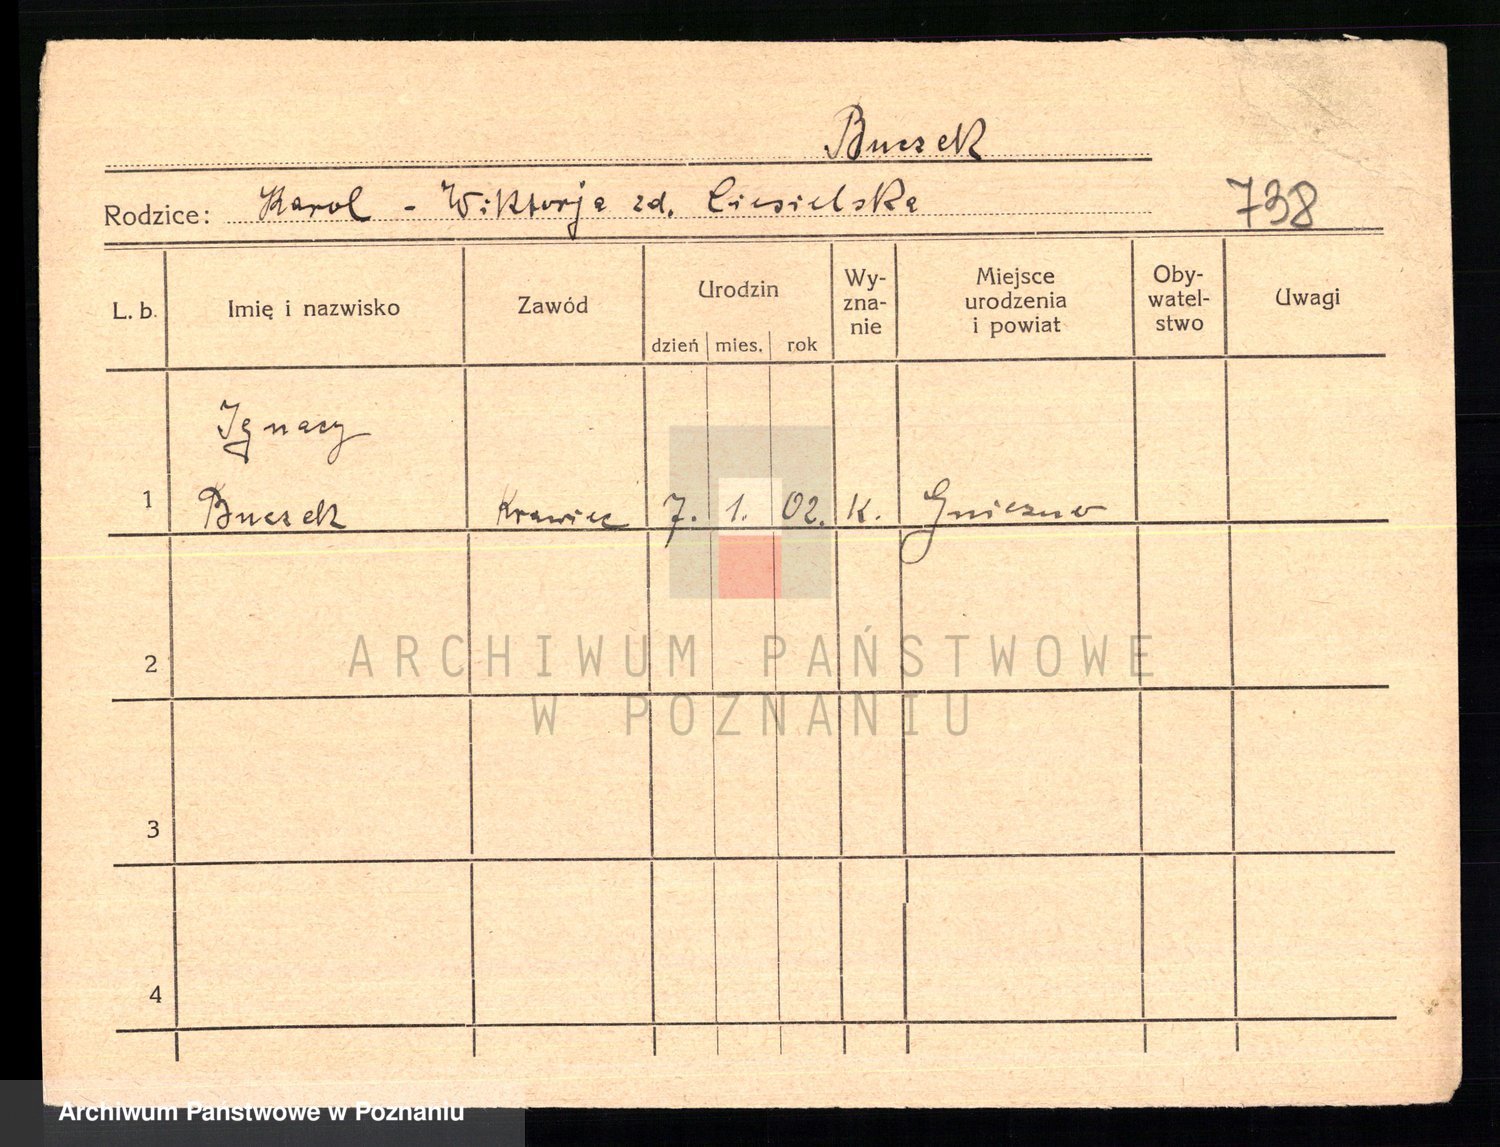 Buczek
Rodzice: Karol - Wiktorja zd. Ciesielska
738
L. b. Imię i nazwisko Zawód Urodzin Wy-zna-nie Miejsce urodzenia i powiat Oby-watel-stwo Uwagi
dzień mies. rok
Ignacy
1 Buczek Krawiec 7. 1. 02. K. Gniezno
2
ARCHIWUM PAŃSTWOWE
W POZNANIU
3
4
Archiwum Państwowe w Poznaniu